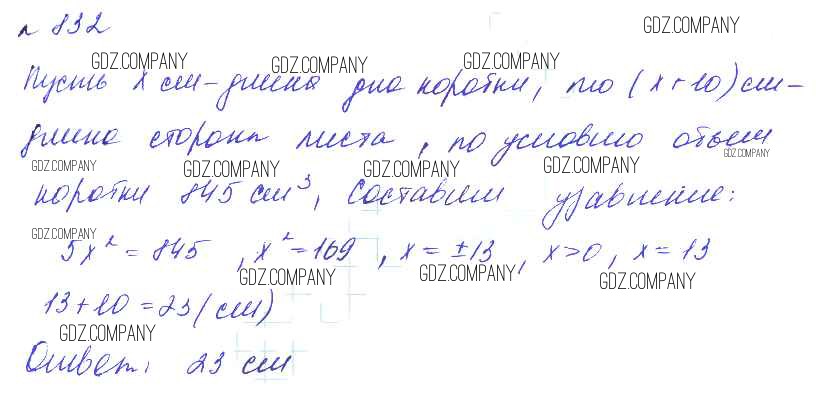 № 832
GDZ.COMPANY
GDZ.COMPANY GDZ.COMPANY GDZ.COMPANY
Пусть x см – длина дна коробки, то (x+10) см –
длина стороны листа, по условию объем
GDZ.COMPANY GDZ.COMPANY GDZ.COMPANY GDZ.COMPANY GDZ.COMPANY
коробки 845 см³, Составим уравнение:
GDZ.COMPANY
5x² = 845, x² = 169, x = ±13, x>0, x = 13
GDZ.COMPANY GDZ.COMPANY GDZ.COMPANY
13+10 = 23 (см)
GDZ.COMPANY
Ответ: 23 см